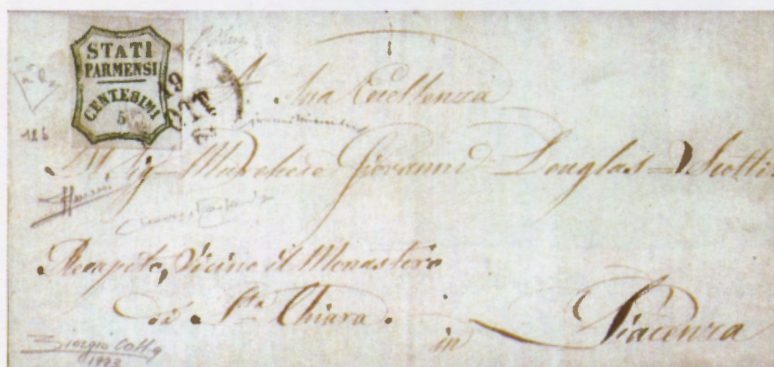 STATI
PARMENSI
CENTESIMI
5
19
OTT
A Sua Eccellenza
Il Sig Marchese Giovanni Douglas Scotti
Recapito, Vicino il Monastero
di Sta Chiara.
in Piacenza
Giorgio Colla
1993